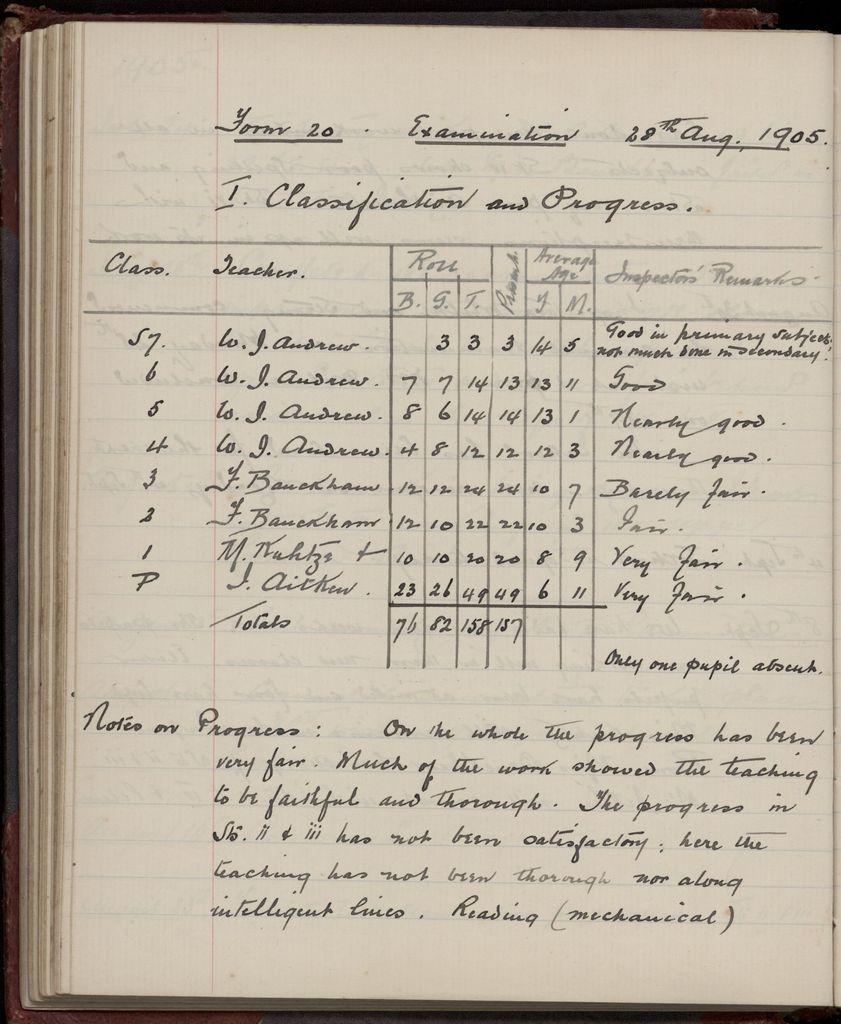 Form 20. Examination 28th Aug, 1905.
I. Classification and Progress.
Class. Teacher. Roll Present. Average Age Inspectors' Remarks
B. G. T. Y M.
S7. W. J. Andrew. 3 3 3 14 5 Good in primary subjects
not much done in secondary.
6 W. J. Andrew. 7 7 14 13 13 11 Good
5 W. J. Andrew. 8 6 14 14 13 1 Nearly good.
4 W. J. Andrew. 4 8 12 12 12 3 Nearly good.
3 F. Bauckham 12 12 24 24 10 7 Barely fair.
2 F. Bauckham 12 10 22 22 10 3 Fair.
1 M. + 10 10 20 20 8 9 Very fair.
P J. Aitken. 23 26 49 49 6 11 Very fair.
Totals 76 82 158 157
Only one pupil absent.
Notes on Progress: On the whole the progress has been
very fair. Much of the work showed the teaching
to be faithful and thorough. The progress in
Sts. ii & iii has not been satisfactory; here the
teaching has not been thorough nor along
intelligent lines. Reading (mechanical)